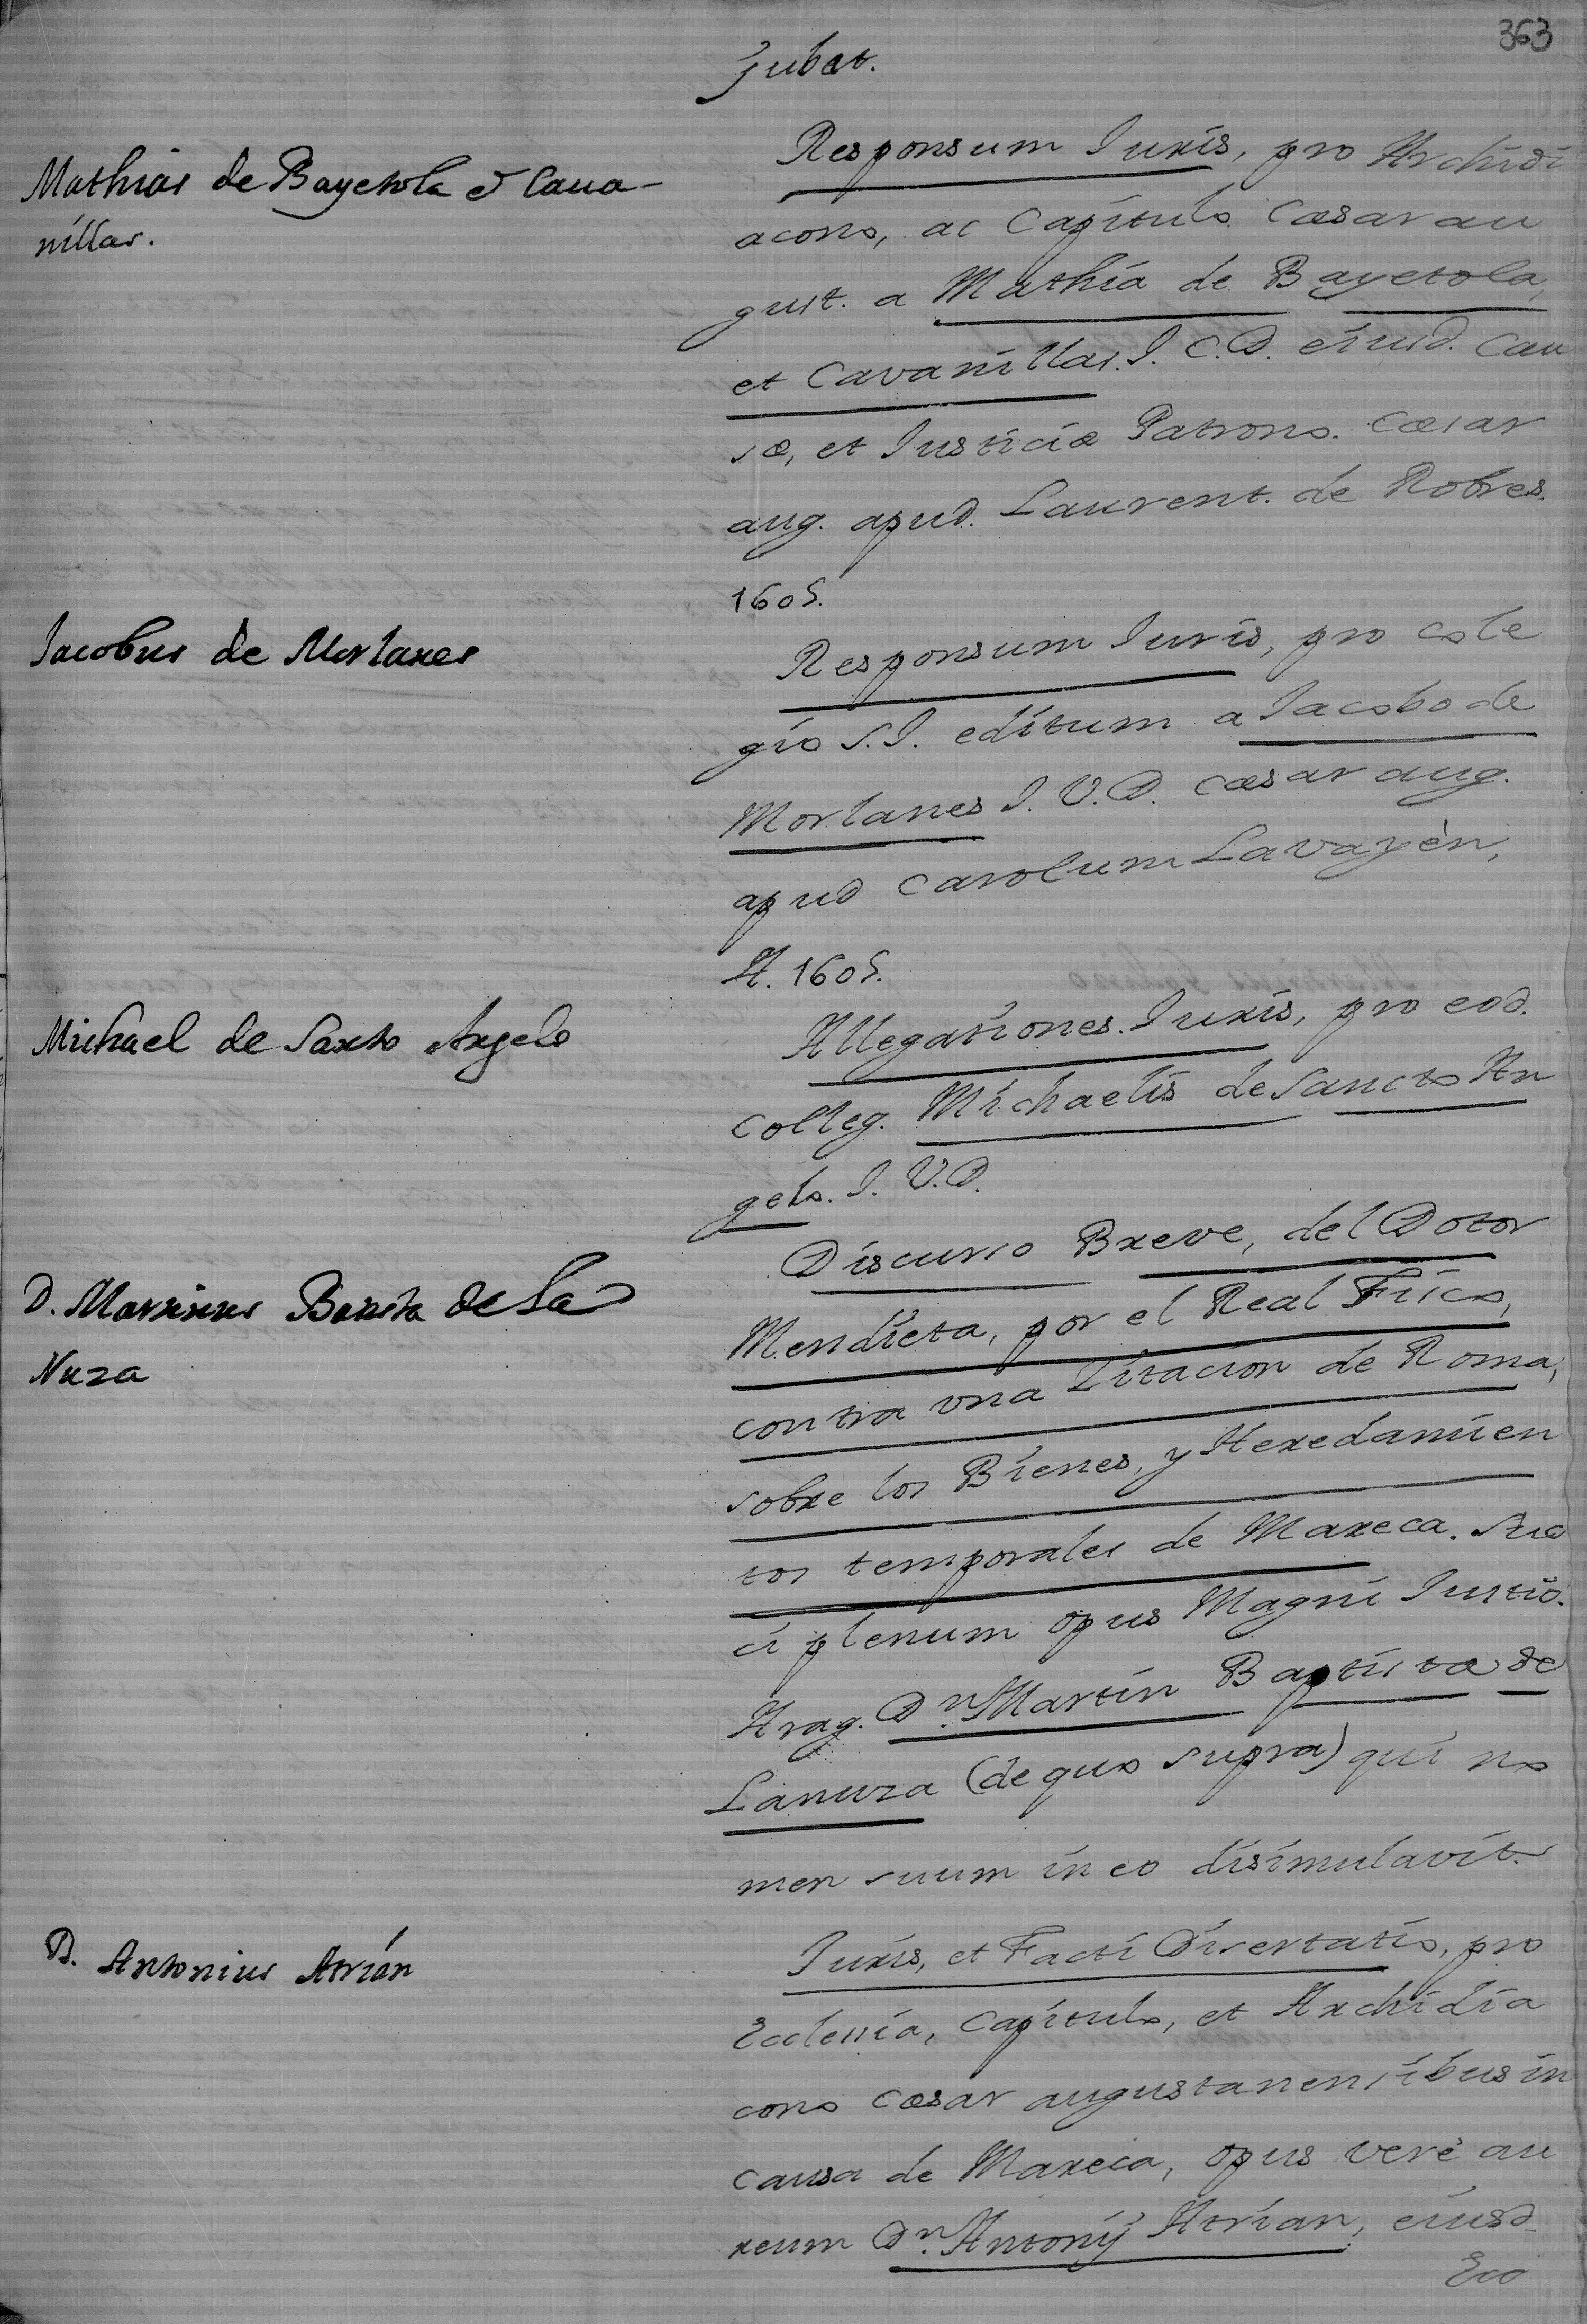 363
Jubet.
Mathias de Bayetola et Caua-
nillas.
Responsum Iuris, pro Archidi
acono, ac Capitulo Cæsarau
gust. a Mathia de Bayetola,
et Cavanillas. I. C. D. eiusd. Cau
sæ, et Iusticiæ Patrono. Cæsar
aug. apud. Laurent. de Robres.
1605.
Iacobus de Morlanes
Responsum Iuris, pro Cole
gio S. I. editum a Iacobo de
Morlanes I. V. D. Cæsaraug.
apud Carolum Lavayèn,
A. 1605.
Michael de Sancto Angelo
Allegationes. Iuris, pro eod.
Colleg. Michaelis de Sancto An
gelo. I. V. D.
D. Martinus Bauta de La
Nuza
Discurso Breve, del Dotor
Mendieta, por el Real Fisco,
contra vna Citacion de Roma,
sobre los Bienes, y Heredamien
tos temporales de Mareca. Suc
ci plenum opus Magni Iustiō.
Arag. Dn. Martin Baptista de
Lanuza (de quo supra) qui no
men suum in eo disimulavit.
D. Antonius Atrián
Iuris, et Facti Disertatio, pro
Ecclessia, Capitulo, et Archidia
cono Cæsaraugustanensibus in
causa de Mareca, opus verè au
reum Dn. Antonÿ Atrian, eiusd.
Ecc